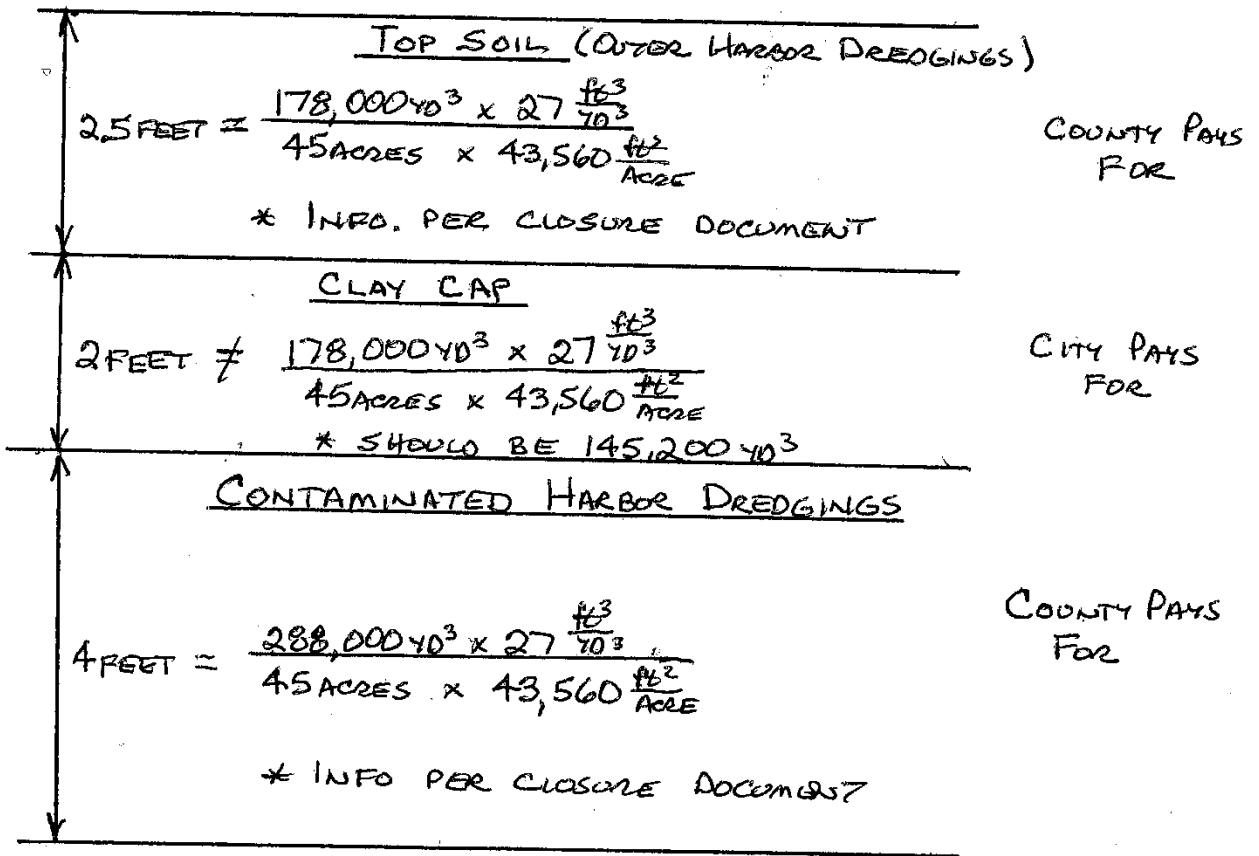 TOP SOIL (OUTER HARBOR DREDGINGS)
2.5 FEET = 178,000 YD³ × 27 ft³/YD³
45 ACRES × 43,560 ft²/ACRE
COUNTY PAYS
FOR
* INFO. PER CLOSURE DOCUMENT
CLAY CAP
2 FEET ≠ 178,000 YD³ × 27 ft³/YD³
45 ACRES × 43,560 ft²/ACRE
CITY PAYS
FOR
* SHOULD BE 145,200 YD³
CONTAMINATED HARBOR DREDGINGS
4 FEET = 288,000 YD³ × 27 ft³/YD³
45 ACRES × 43,560 ft²/ACRE
COUNTY PAYS
FOR
* INFO PER CLOSURE DOCUMENT